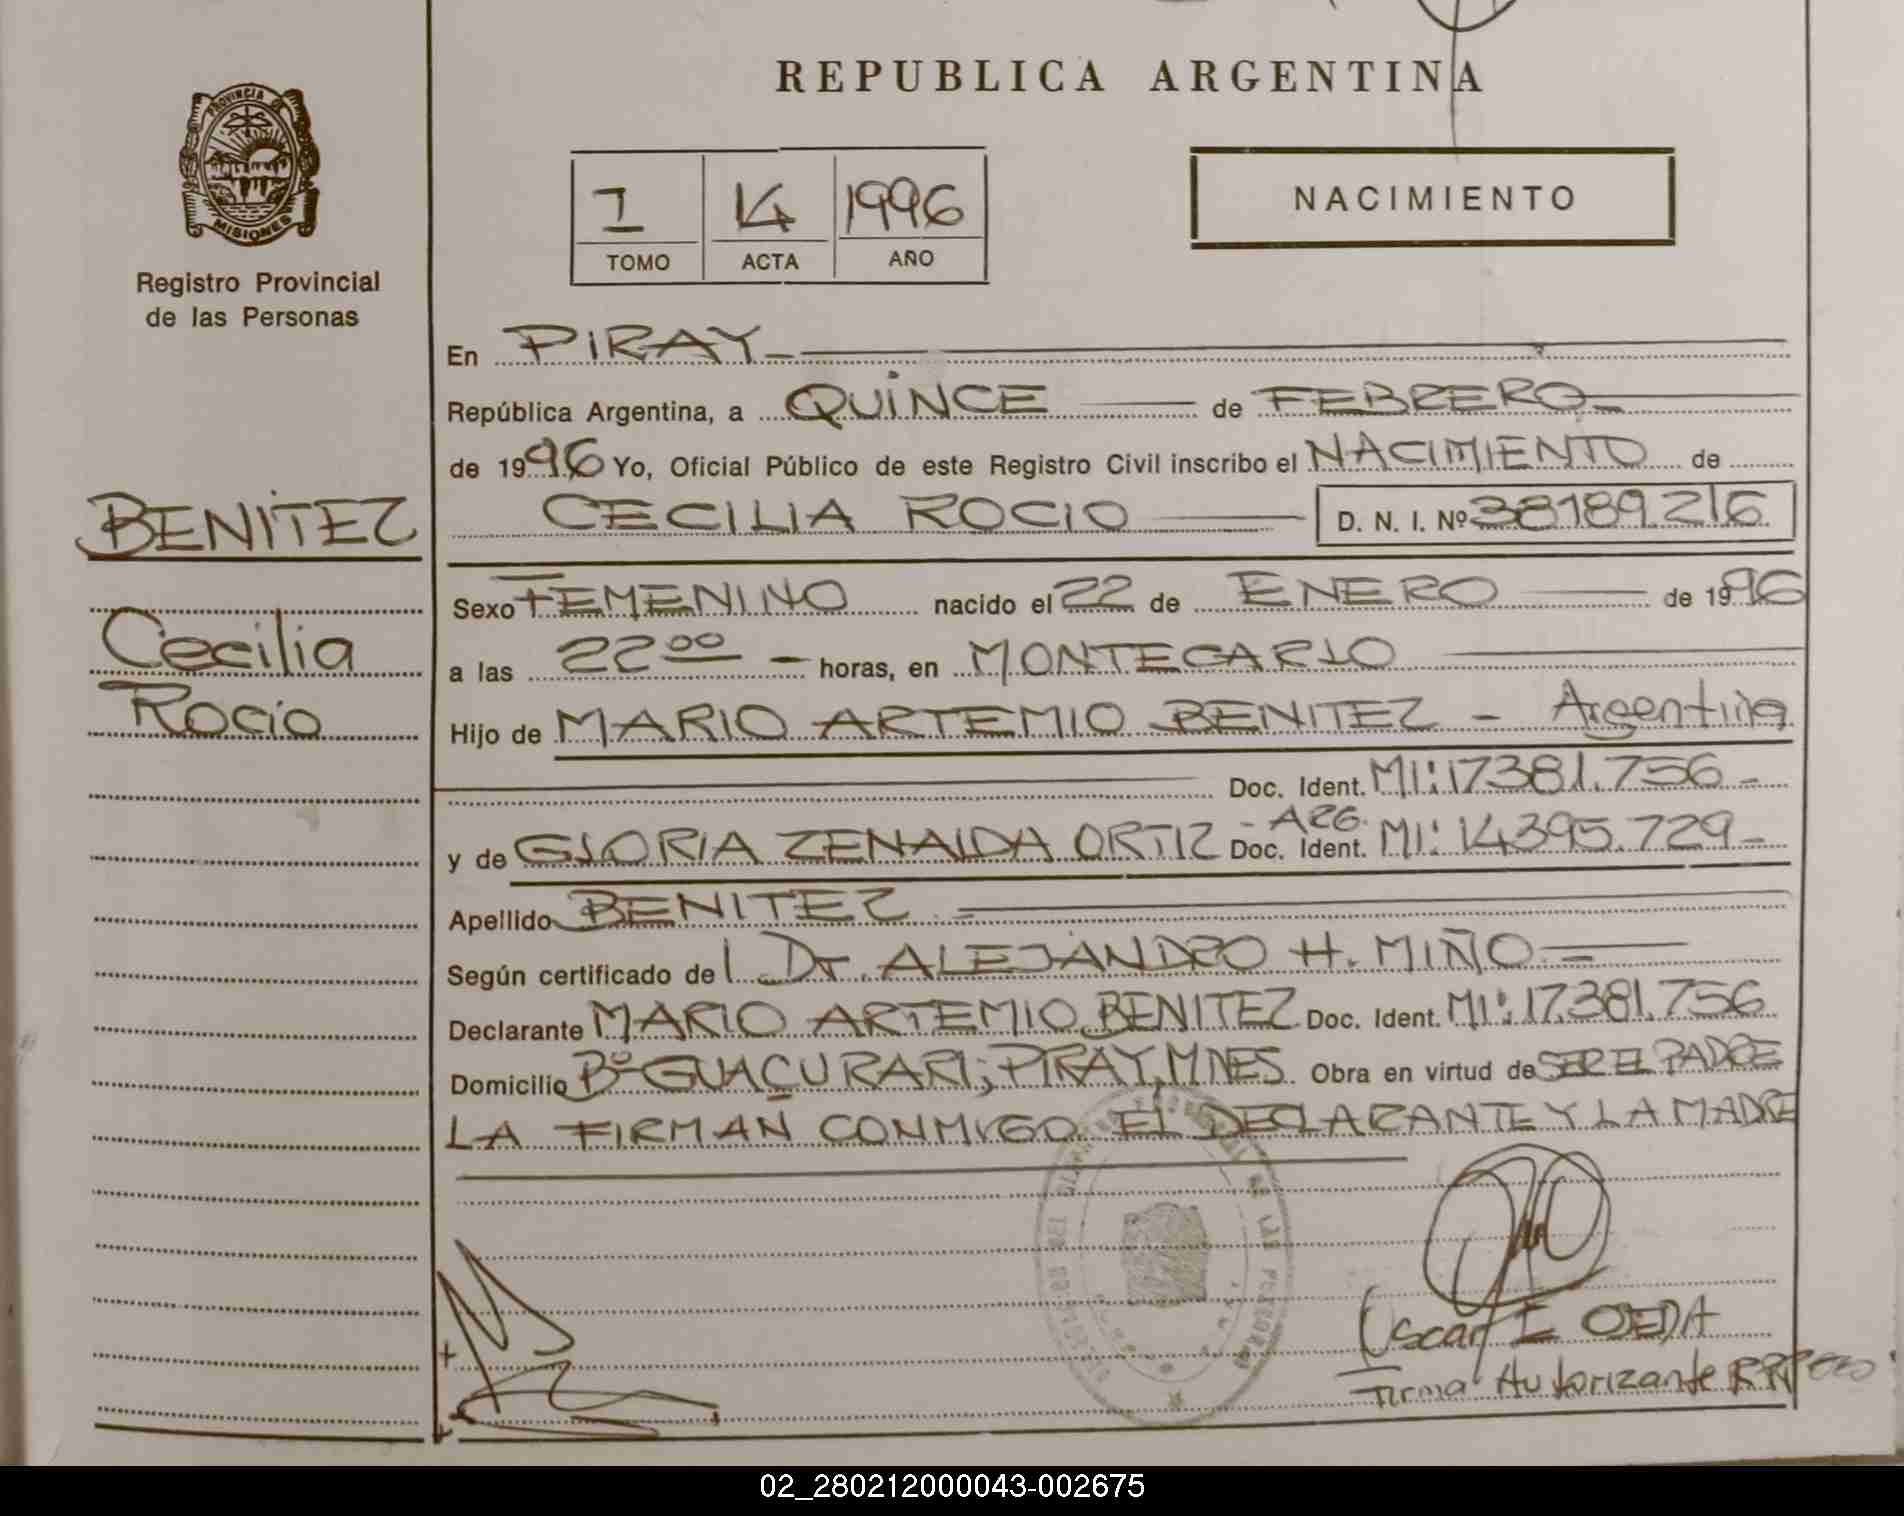 REPUBLICA ARGENTINA
PROVINCIA DE
MISIONES
Registro Provincial
de las Personas
I 14 1996
TOMO ACTA AÑO
NACIMIENTO
En PIRAY
República Argentina, a QUINCE de FEBRERO
de 1996 Yo, Oficial Público de este Registro Civil inscribo el NACIMIENTO de
CECILIA ROCIO D. N. I. Nº 38189.216
BENITEZ
Cecilia
Rocio
Sexo FEMENINO nacido el 22 de ENERO de 1996
a las 22 00 horas, en MONTECARLO
Hijo de MARIO ARTEMIO BENITEZ - Argentina
Doc. Ident. MI: 17381.756 -
y de GLORIA ZENAIDA ORTIZ - ARG. Doc. Ident. MI: 14395.729 -
Apellido BENITEZ
Según certificado del Dr. ALEJANDRO H. MIÑO
Declarante MARIO ARTEMIO BENITEZ Doc. Ident. MI: 17.381.756
Domicilio Bº GUACURARI; PIRAY, MNES. Obra en virtud de SER EL PADRE
LA FIRMAN CONMIGO EL DECLARANTE Y LA MADRE
Oscar E OJEDA
Firma Autorizante
02_280212000043-002675